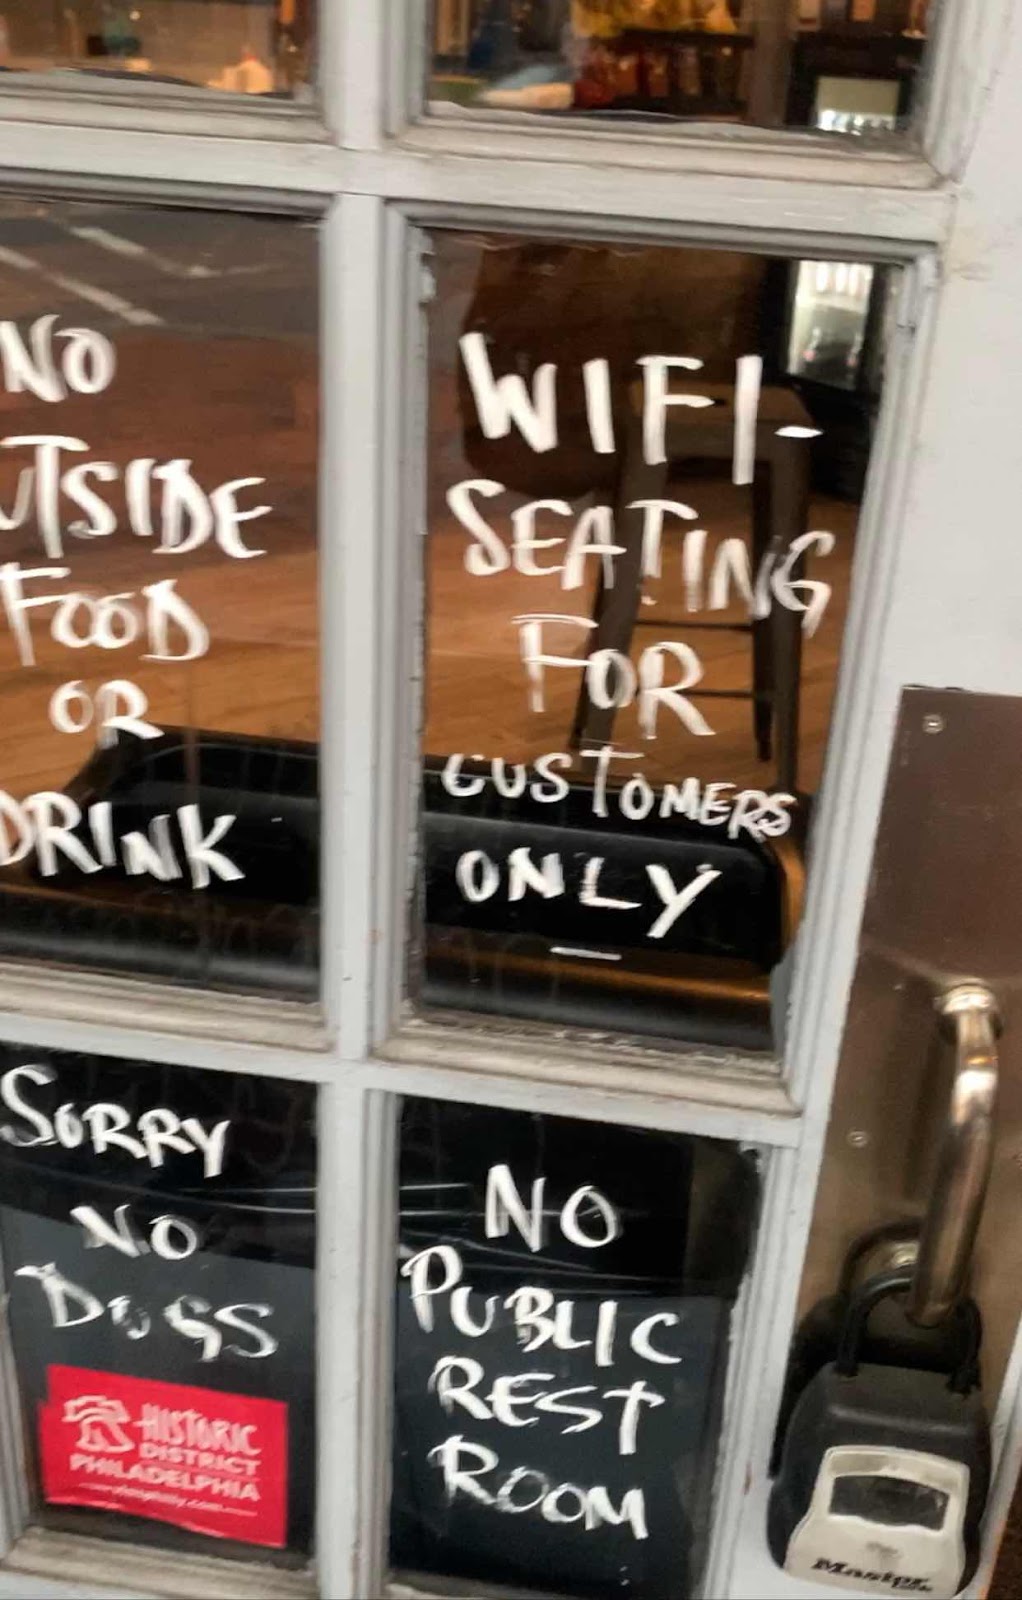 NO
UTSIDE
FOOD
OR
DRINK
WIFI-
SEATING
FOR
CUSTOMERS
ONLY
SORRY
NO
DOGS
HISTORIC
DISTRICT
PHILADELPHIA
NO
PUBLIC
REST
ROOM
Master